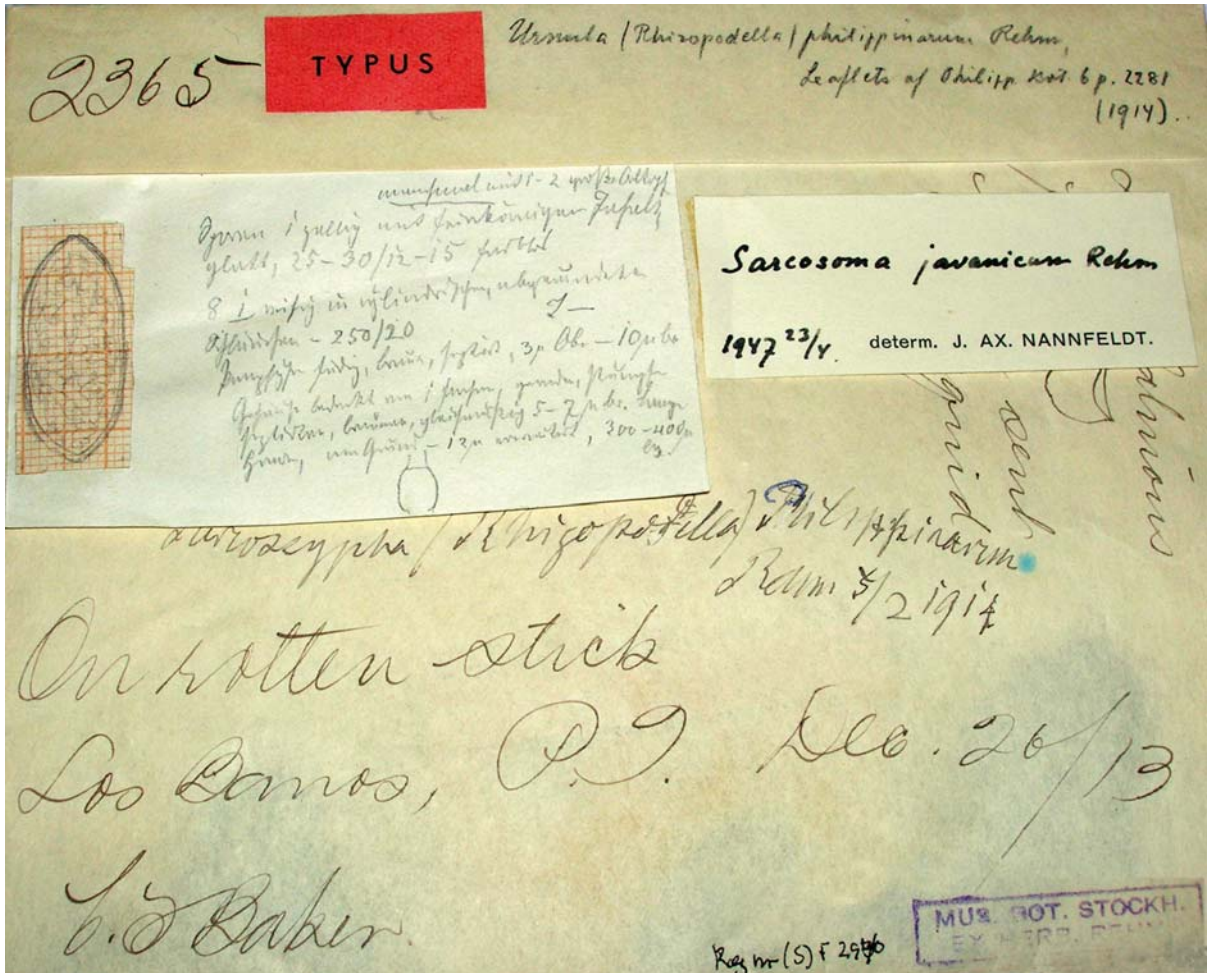 2365
TYPUS
Urnula (Rhizopodella) philippinarum Rehm,
Leaflets of Philipp. Bot. 6 p. 2281
(1914).
manchmal mit 1-2
Sporen 1 zellig mit feinkörnigem Inhalt,
glatt, 25-30/12-15 farblos
8 1 reihig in cylindrischen, abgerundeten
Schläuchen - 250/20
Paraphysen fädig, braun, septirt, 3µ Ob. - 10µ br
Gehäuse bedeckt von einfachen, geraden, stumpfen
septirten, braunen, 5-7 µ br.
Haaren, am Grund - 12µ 300-400µ
lg.
Sarcosoma javanicum Rehm
1947 23/4. determ. J. AX. NANNFELDT.
send
(Rhizopodella) Philippinarum
Rehm 5/2 1914
On rotten stick
Los Banos, P.I. Dec. 26/13
C.F Baker.
MUS. BOT. STOCKH.
EX HERB. REHM
Reg nr (S) F 2936